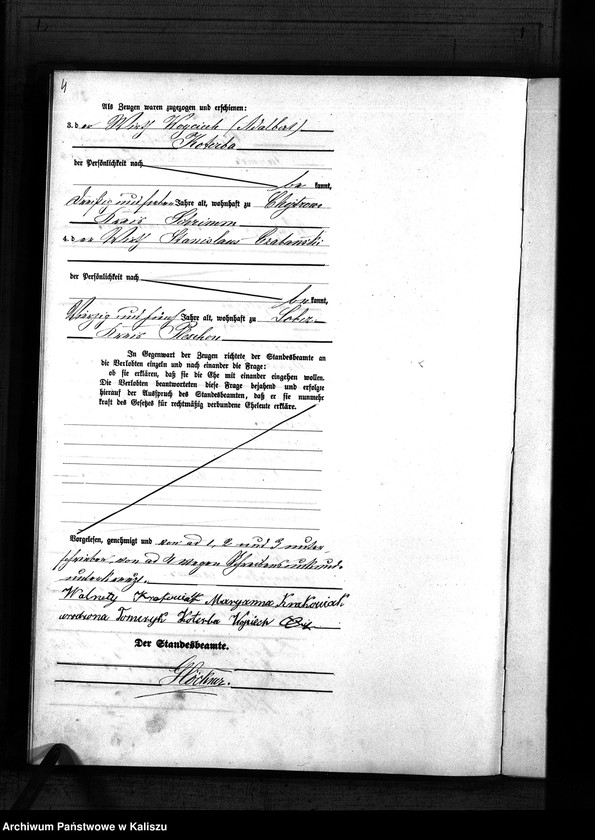 4
Als Zeugen waren zugezogen und erschienen:
3. der Wirth Woyciech (Adalbert)
Koterba
der Persönlichkeit nach
be kannt,
dreißig und sieben Jahre alt, wohnhaft zu
Kreis Schrimm
4. der Wirth Stanislaus
der Persönlichkeit nach
be kannt,
vierzig und fünf Jahre alt, wohnhaft zu
Kreis Pleschen
In Gegenwart der Zeugen richtete der Standesbeamte an
die Verlobten einzeln und nach einander die Frage:
ob sie erklären, daß sie die Ehe mit einander eingehen wollen.
Die Verlobten beantworteten diese Frage bejahend und erfolgte
hierauf der Ausspruch des Standesbeamten, daß er sie nunmehr
kraft des Gesetzes für rechtmäßig verbundene Eheleute erkläre.
Vorgelesen, genehmigt und von ad 1, 2 und 3 unter-
schrieben, von ad 4 wegen Schreibensunkunde
unterkreuzt.
Walnety Krakowiak Maryanna Krakowiak
urodzona Tomczyk Koterba Wojciech
Der Standesbeamte.
Archiwum Państwowe w Kaliszu